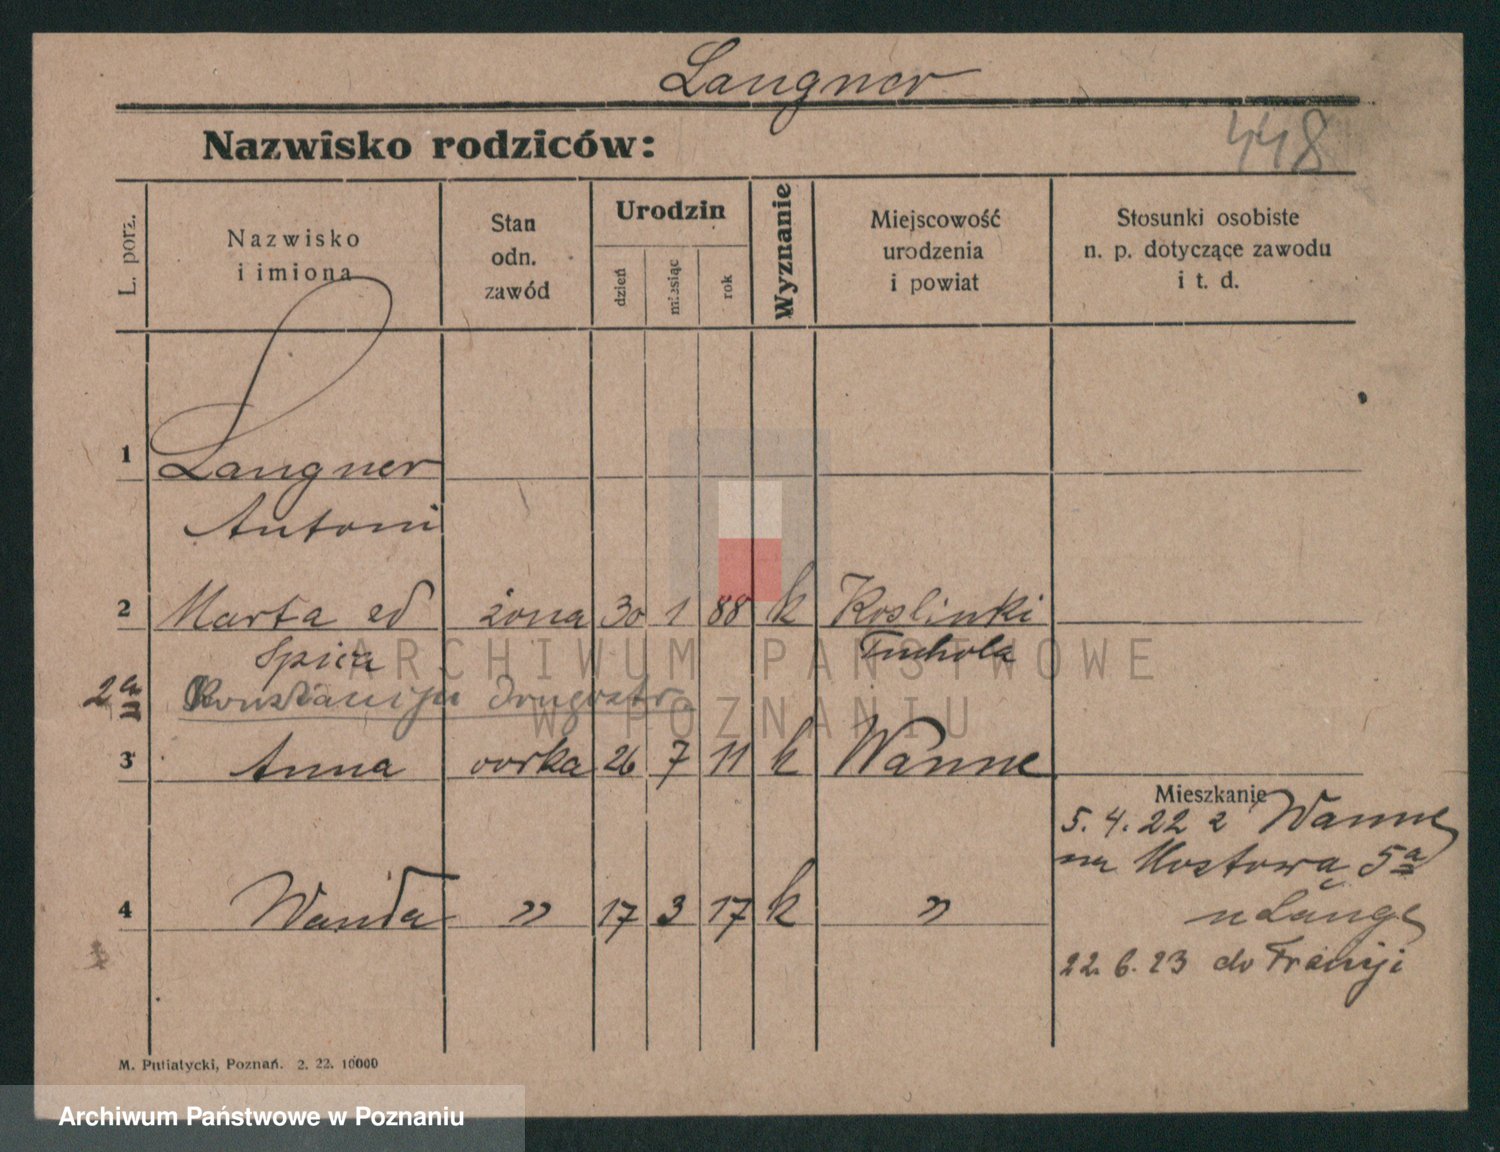 Langner
Nazwisko rodziców:
448
L. porz.
Nazwisko
i imiona
Stan
odn.
zawód
Urodzin
dzień
miesiąc
rok
Wyznanie
Miejscowość
urodzenia
i powiat
Stosunki osobiste
n. p. dotyczące zawodu
i t. d.
1 Langner
Antoni
2 Marta ed żona 30 1 88 k Koslinki
Spica Tuchola
2a
3 Anna corka 26 7 11 k Wanne
Mieszkanie
5. 4. 22 z Wanne
na Mostowa 5a
4 Wanda " 17 3 17 k "
u Lange
22. 6. 23 do Francji
M. Putiatycki, Poznań. 2. 22. 10000
ARCHIWUM PAŃSTWOWE
W POZNANIU
Archiwum Państwowe w Poznaniu